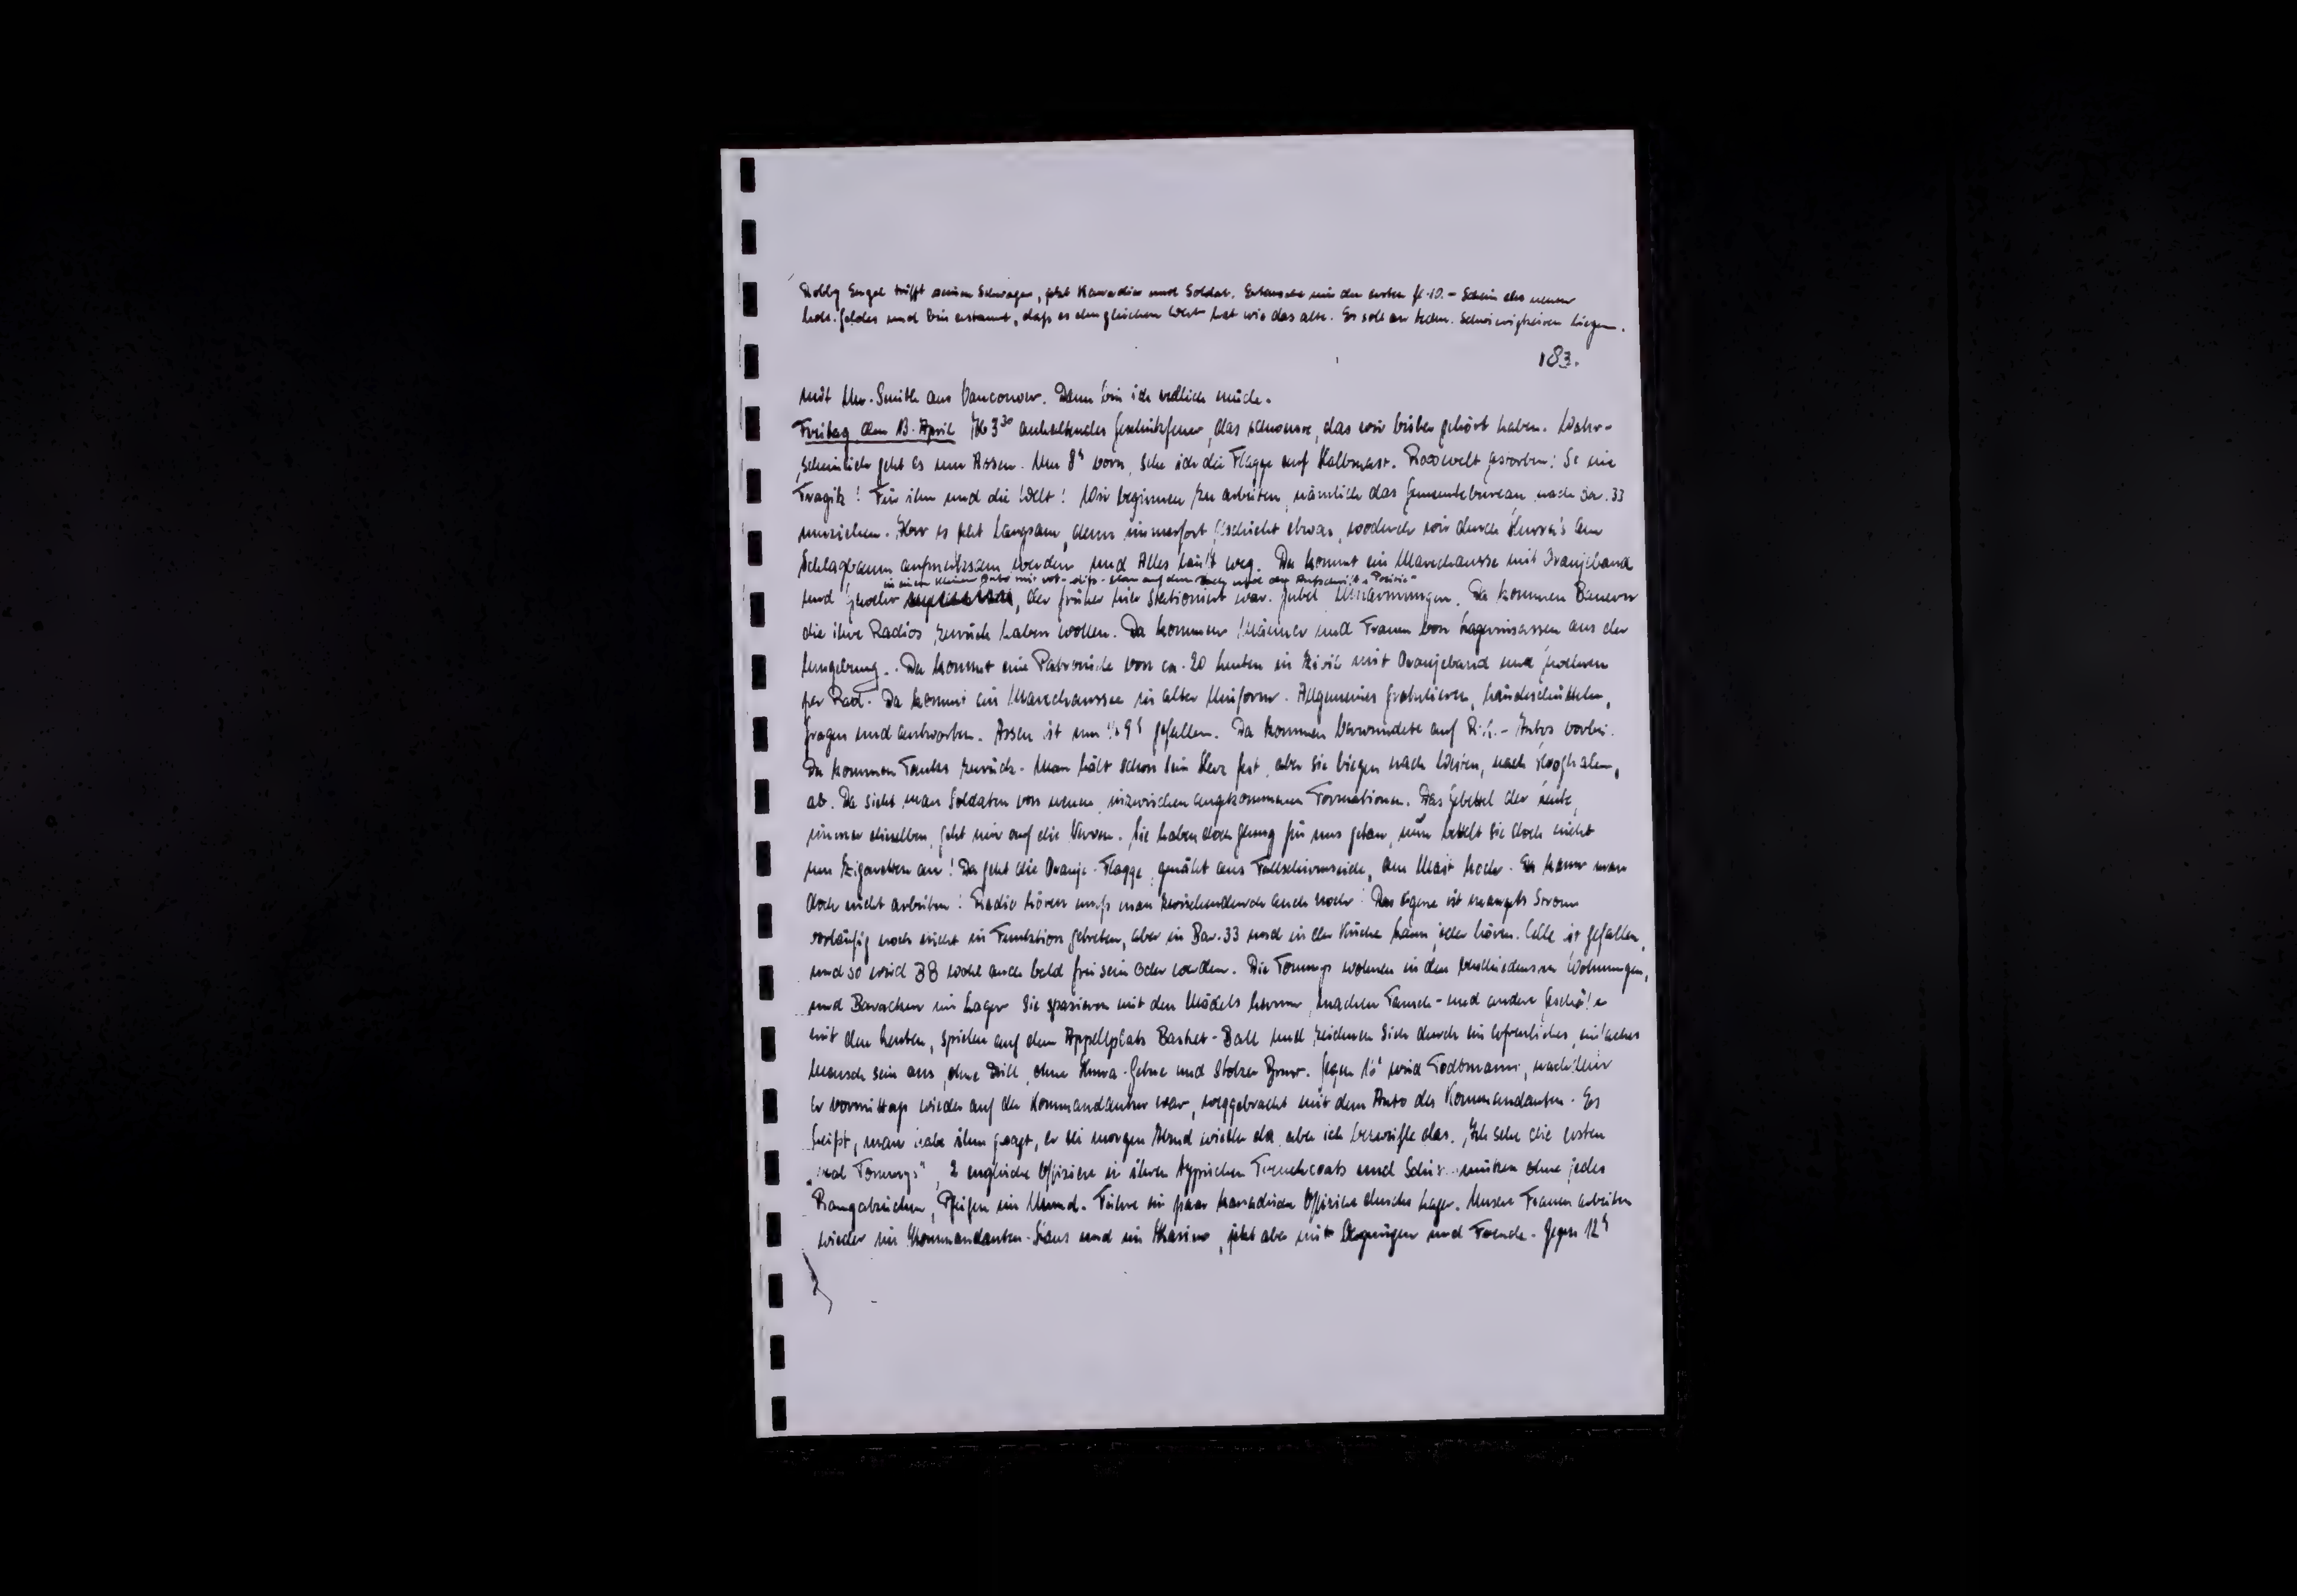 Robby Engel trifft seinen Schwager, jetzt Kanadier und Soldat. mir den ersten fl. 10.- Schein des neuen
holl. Geldes und bin erstaunt, dass es den gleichen Wert hat wie das alte. Es soll an techn. Schwierigkeiten liegen.
183.
mit Mr. Smith aus Vancouver. Dann bin ich endlich müde.
Freitag den 13. April Ab 3³⁰ anhaltendes Geschützfeuer, das schwerste, das wir bisher gehört haben. Wahr-
scheinlich geht es um Assen. Um 8ʰ vorn, sehe ich die Flagge auf Halbmast. Roosevelt gestorben! So eine
Tragik! Für ihn und die Welt! Wir beginnen zu arbeiten, nämlich das Gemeentebureau nach Bar. 33
umziehen. Aber es geht langsam, denn immerfort geschieht etwas, wodurch wir durch Hurra's am
Schlagbaum aufmerksam werden und Alles läuft weg. Da kommt ein Marechaussee mit Oranjeband
in einem kleinen Auto mit rot-weiss- auf dem und der Aufschrift "Politie"
und Gewehr, der früher hier stationiert war. Jubel, Umarmungen. Da kommen Bauern
die ihre Radios zurück haben wollen. Da kommen Männer und Frauen von Lagerinsassen aus der
Umgebung. Da kommt eine Patrouille von ca. 20 Leuten in Zivil mit Oranjeband und Gewehren
per Rad. Da kommt ein Marechaussee in alter Uniform. Allgemeines Gratulieren, Händeschütteln,
fragen und antworten. Assen ist um ½9ʰ gefallen. Da kommen Verwundete auf R.K.- Autos vorbei.
Da kommen Tanks zurück. Man hält schon sein Herz fest, aber sie biegen nach Westen, nach Hooghalen,
ab. Da sieht man Soldaten von neuen, inzwischen angekommenen Formationen. Das Gebettel der Leute,
immer dieselben, geht mir auf die Nerven. Sie haben doch genug für uns getan, nun bettelt sie doch nicht
um Zigaretten an! Da geht die Oranje-Flagge, genäht aus Fallschirmseide, am Mast hoch. Da kann man
doch nicht arbeiten! Radio hören muss man zwischendurch auch noch! Das eigene ist mangels Strom
vorläufig noch nicht in Funktion getreten, aber in Bar. 33 und in der Küche kann jeder hören. Celle ist gefallen,
und so wird BB wohl auch bald frei sein oder werden. Die Tommys wohnen in den verschiedensten Wohnungen,
und Baracken im Lager. Sie spazieren mit den Mädels herum, machen Tausch- und andere Geschäfte
mit den Leuten, spielen auf dem Appellplatz Basket-Ball und zeichnen sich durch ein erfreuliches, einfaches
Mensch sein aus, ohne Drill, ohne Hurra-Gebrüll und stolzer Brust. Gegen 10ʰ wird Todtmann, nachdem
er vormittags wieder auf der Kommandantur war, weggebracht mit dem Auto des Kommandanten. Es
heisst, man habe ihm gesagt, er sei morgen Abend wieder da, aber ich bezweifle das. Ich sehe die ersten
"real Tommys", 2 englische Offiziere in ihren typischen Trenchcoats und ohne jedes
Rangabzeichen, Pfeifen im Mund. Führe ein paar kanadische Offiziere durchs Lager. Unsere Frauen arbeiten
wieder im Kommandanten-Haus und im Kasino, jetzt aber mit Vergnügen und Freude. Gegen 12ʰ